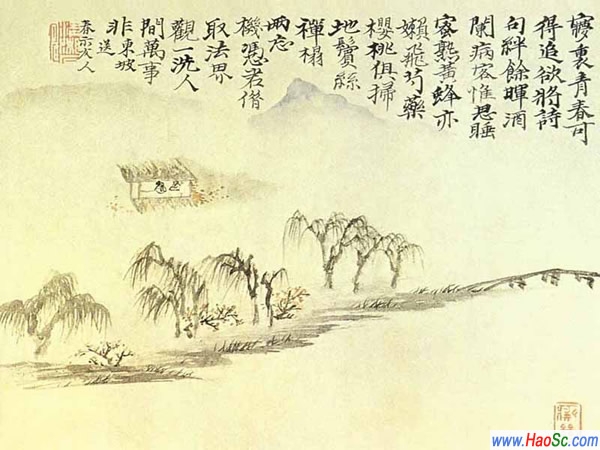 夢裏青春可
得追欲將詩
句絆餘暉酒
闌病客惟思睡
蜜熟黃蜂亦
嬾飛芍藥
櫻桃俱掃
地鬢絲
禪榻
兩忘
機憑君借
取法界
觀一洗人
間萬事
非東坡
送
春
www.HaoSc.com